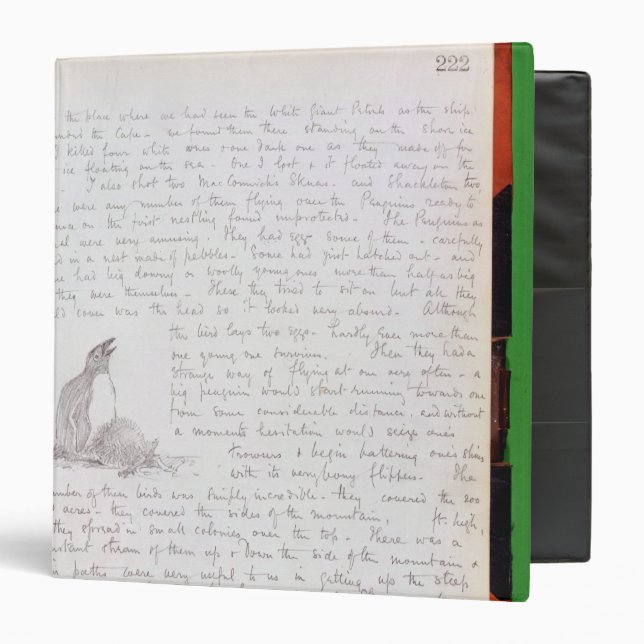 222
the place where we had seen the White Giant Petrels as the ship
the Cape - we found them there standing on the shore ice
killed four white ones & one dark one as they made off for
ice floating on the sea - One I lost & it floated away on the
I also shot two MacCormick's Skuas - and Shackleton two,
were any number of them flying over the Penguins ready to
on the first nestling found unprotected - The Penguins as
were very amusing. They had eggs some of them - carefully
in a nest made of pebbles - Some had just hatched out - and
had big downy or woolly young ones more than half as big
they were themselves - These they tried to sit on but all they
cover was the head so it looked very absurd - Although
the bird lays two eggs - hardly ever more than
one young one survives. Then they had a
strange way of flying at one very often - a
big penguin would start running towards one
from some considerable distance, and without
a moments hesitation would seize one's
trowsers & begin battering one's shins
with its very bony flippers - The
number of these birds was simply incredible - they covered the 200
acres - they covered the sides of the mountain, ft. high,
they spread in small colonies over the top - There was a
stream of them up & down the side of the mountain &
paths were very useful to us in getting up the steep